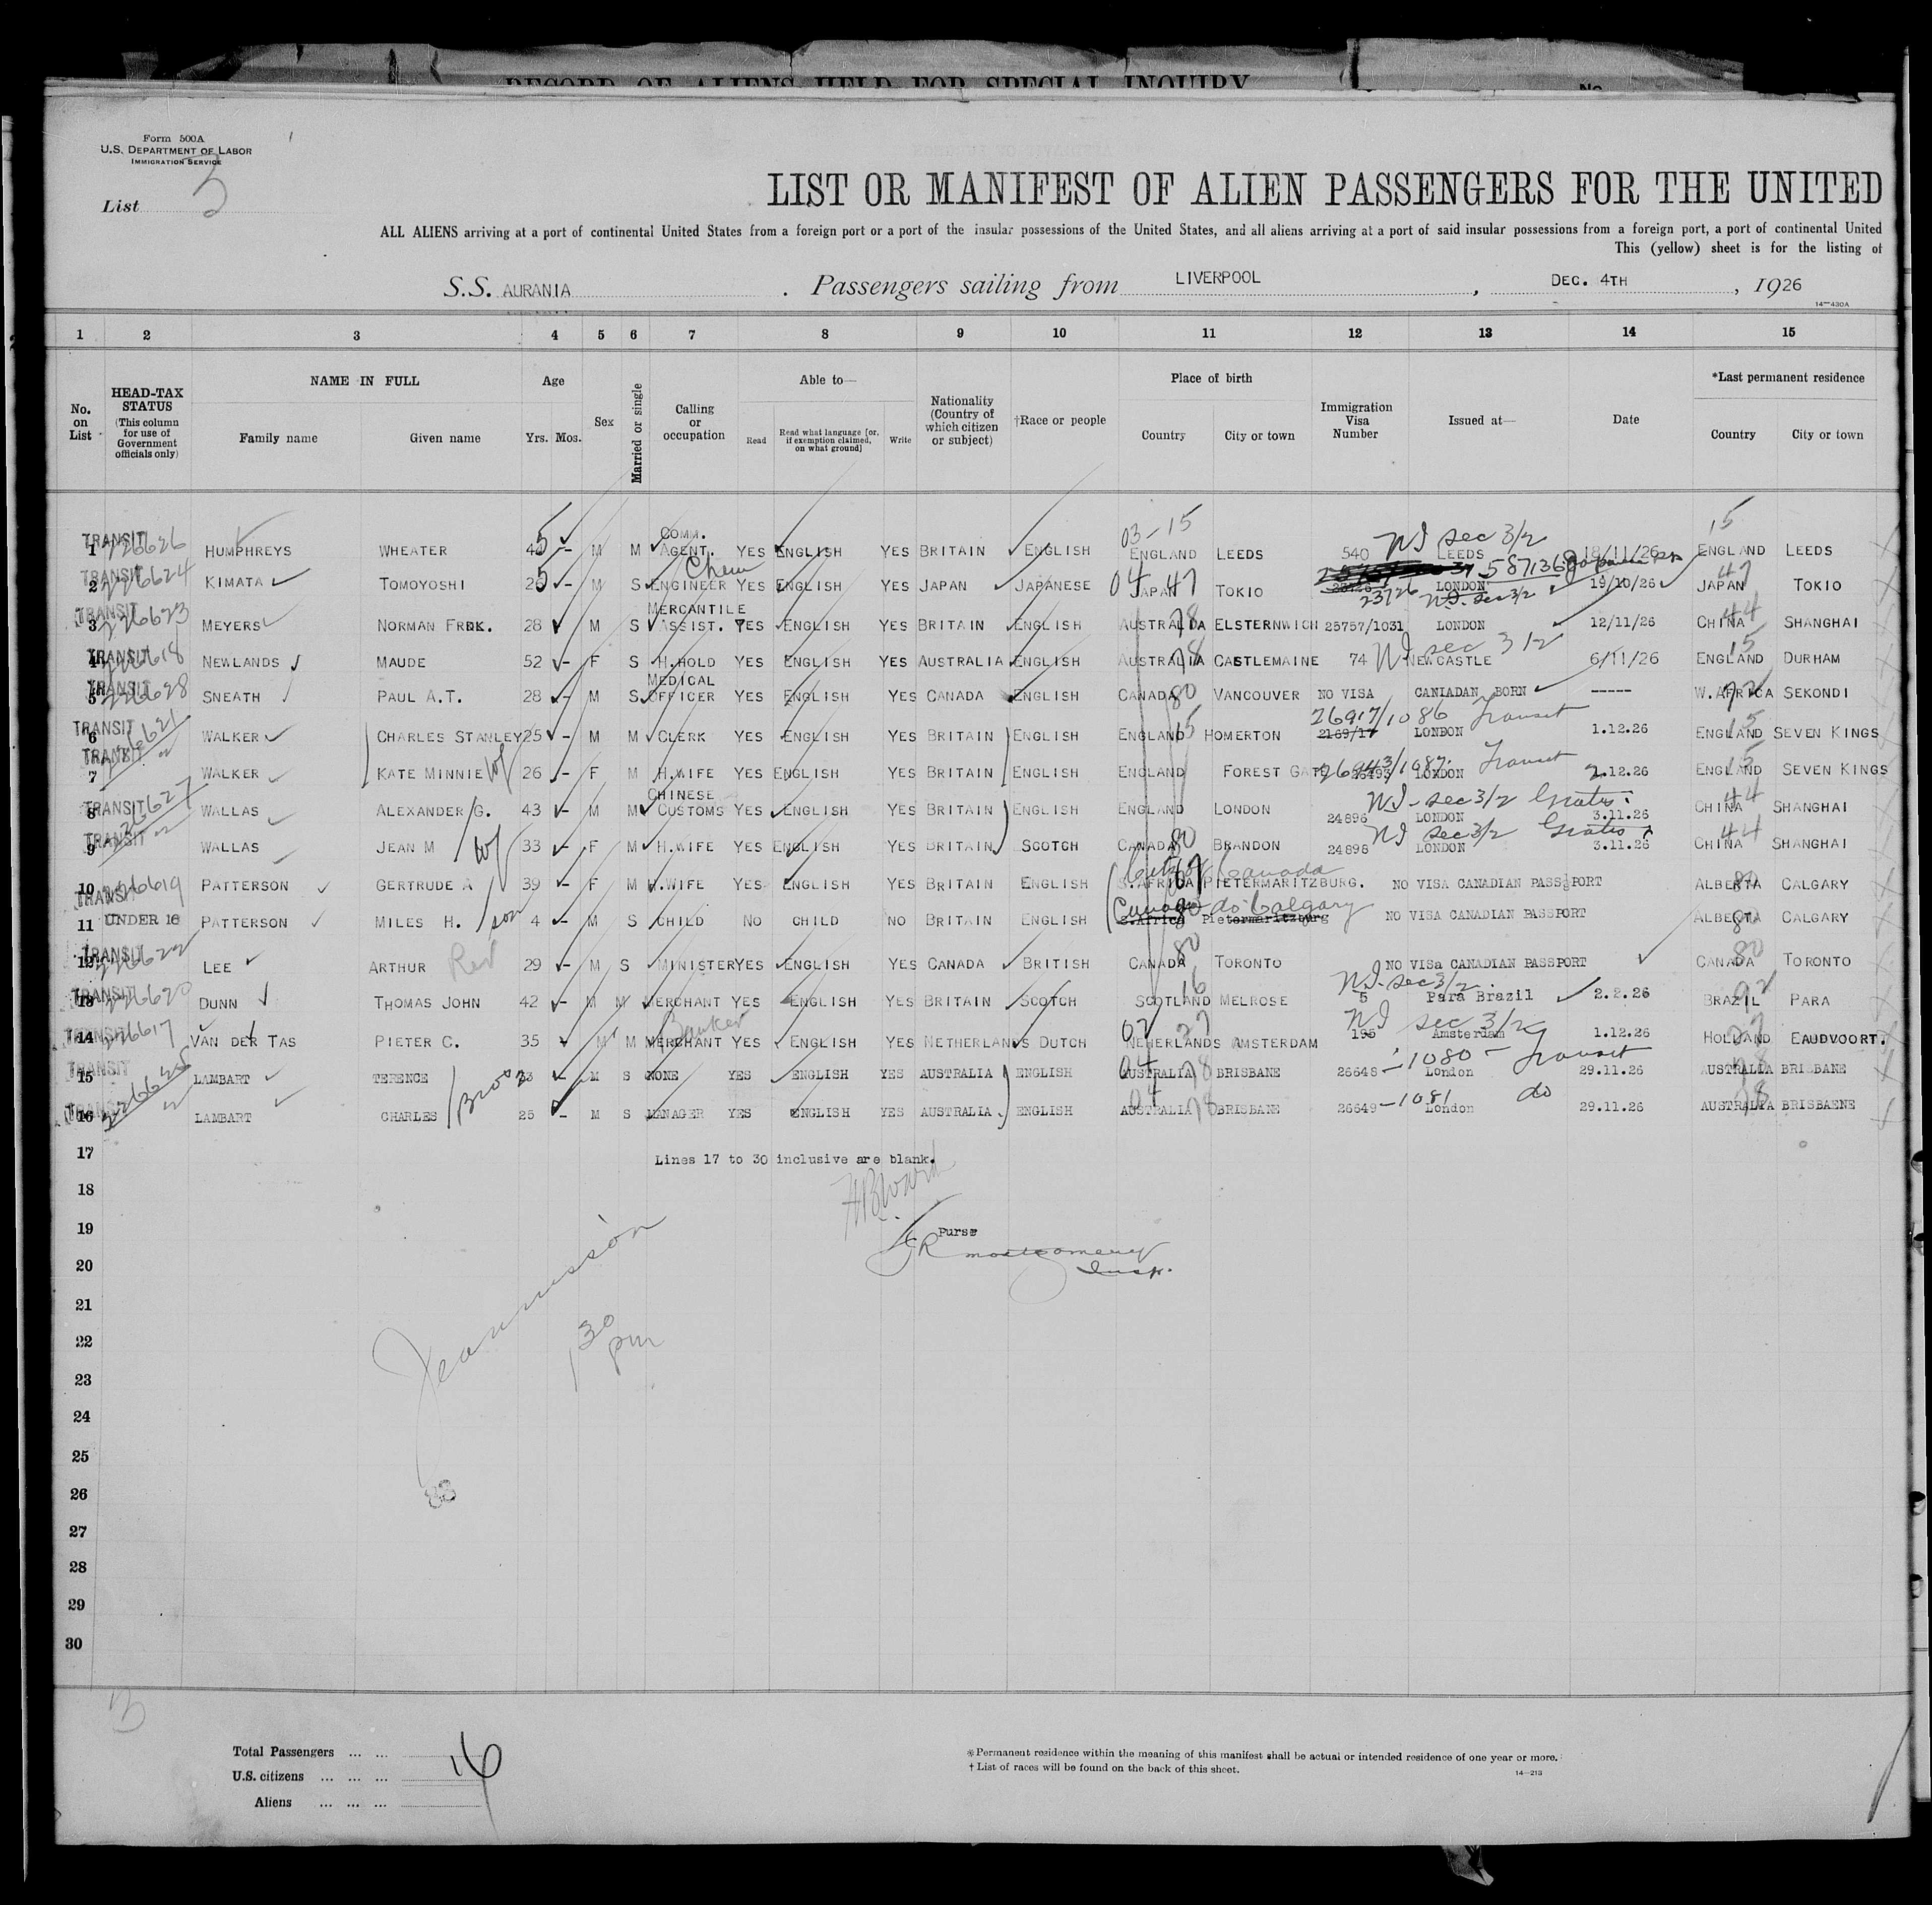 RECORD OF ALIENS HELD FOR SPECIAL INQUIRY
No.
Form 500A
U.S. DEPARTMENT OF LABOR
IMMIGRATION SERVICE
List 3
LIST OR MANIFEST OF ALIEN PASSENGERS FOR THE UNITED
ALL ALIENS arriving at a port of continental United States from a foreign port or a port of the insular possessions of the United States, and all aliens arriving at a port of said insular possessions from a foreign port, a port of continental United
This (yellow) sheet is for the listing of
S.S. AURANIA . Passengers sailing from LIVERPOOL , DEC. 4TH , 1926
14—430A
1 2 3 4 5 6 7 8 9 10 11 12 13 14 15
No. on List
HEAD-TAX STATUS (This column for use of Government officials only)
NAME IN FULL
Family name Given name
Age
Yrs. Mos.
Sex
Married or single
Calling or occupation
Able to—
Read
Read what language [or, if exemption claimed, on what ground]
Write
Nationality (Country of which citizen or subject)
†Race or people
Place of birth
Country City or town
Immigration Visa Number
Issued at—
Date
*Last permanent residence
Country City or town
03-15 NI sec 3/2 15
TRANSIT 226626
1 HUMPHREYS WHEATER 45 – M M COMM. AGENT. YES ENGLISH YES BRITAIN ENGLISH ENGLAND LEEDS 540 LEEDS 18/11/26 ENGLAND LEEDS
TRANSIT 226624 Chem 587136
2 KIMATA TOMOYOSHI 25 – M S ENGINEER YES ENGLISH YES JAPAN JAPANESE 04 JAPAN 47 TOKIO 23726 LONDON NI. sec 3/2 19/10/26 JAPAN 47 TOKIO
TRANSIT 226623
3 MEYERS NORMAN FRDK. 28 M S MERCANTILE ASSIST. YES ENGLISH YES BRITAIN ENGLISH AUSTRALIA 78 ELSTERNWICH 25757/1031 LONDON 12/11/26 CHINA 44 SHANGHAI
TRANSIT 226618 NI sec 3/2
4 NEWLANDS MAUDE 52 – F S H.HOLD YES ENGLISH YES AUSTRALIA ENGLISH AUSTRALIA 78 CASTLEMAINE 74 NEWCASTLE 6/11/26 ENGLAND 15 DURHAM
TRANSIT 226628
5 SNEATH PAUL A.T. 28 – M S MEDICAL OFFICER YES ENGLISH YES CANADA ENGLISH CANADA 80 VANCOUVER NO VISA CANIADAN BORN ----- W.AFRICA 72 SEKONDI
TRANSIT 226621 26917/1086 Transit
6 WALKER CHARLES STANLEY 25 – M M CLERK YES ENGLISH YES BRITAIN ENGLISH ENGLAND 15 HOMERTON 2169/17 LONDON 1.12.26 ENGLAND 15 SEVEN KINGS
TRANSIT
7 WALKER KATE MINNIE wf 26 – F M H.WIFE YES ENGLISH YES BRITAIN ENGLISH ENGLAND FOREST GATE 26943/1087. LONDON Transit 2.12.26 ENGLAND 15 SEVEN KINGS
TRANSIT 226627 NI - sec 3/2 Gratis
8 WALLAS ALEXANDER G. 43 – M M CHINESE CUSTOMS YES ENGLISH YES BRITAIN ENGLISH ENGLAND LONDON 24896 LONDON 3.11.26 CHINA 44 SHANGHAI
TRANSIT NI sec 3/2 Gratis
9 WALLAS JEAN M wf 33 – F M H.WIFE YES ENGLISH YES BRITAIN SCOTCH CANADA 80 BRANDON 24898 LONDON 3.11.26 CHINA 44 SHANGHAI
Citz of Canada
10 TRANSIT 226619 PATTERSON GERTRUDE A 39 – F M H.WIFE YES ENGLISH YES BRITAIN ENGLISH S.AFRICA 67 PIETERMARITZBURG. NO VISA CANADIAN PASSPORT ALBERTA 80 CALGARY
Canada do Calgary
11 UNDER 16 PATTERSON MILES H. son 4 – M S CHILD NO CHILD NO BRITAIN ENGLISH S.Africa 80 Pietermaritzburg NO VISA CANADIAN PASSPORT ALBERTA 80 CALGARY
TRANSIT 226622
12 LEE ARTHUR Rev 29 – M S MINISTER YES ENGLISH YES CANADA BRITISH CANADA 80 TORONTO NO VISa CANADIAN PASSPORT CANADA 80 TORONTO
TRANSIT 226620 NI. sec 3/2.
13 DUNN THOMAS JOHN 42 – M M MERCHANT YES ENGLISH YES BRITAIN SCOTCH SCOTLAND 16 MELROSE 5 Para Brazil 2.2.26 BRAZIL 92 PARA
TRANSIT 226617 Banker NI sec 3/2
14 VAN DER TAS PIETER C. 35 M M MERCHANT YES ENGLISH YES NETHERLANDS DUTCH 02 NEHERLANDS 27 AMSTERDAM 195 Amsterdam 1.12.26 HOLLAND 27 EAUDVOORT.
TRANSIT 226625 1080 - Transit
15 LAMBART TERENCE Bros 23 – M S NONE YES ENGLISH YES AUSTRALIA ENGLISH 04 AUSTRALIA 78 BRISBANE 26648 London 29.11.26 AUSTRALIA 78 BRISBANE
TRANSIT
16 LAMBART CHARLES 25 – M S MANAGER YES ENGLISH YES AUSTRALIA ENGLISH 04 AUSTRALIA 78 BRISBANE 26649 - 1081 London do 29.11.26 AUSTRALIA 78 BRISBAENE
17 Lines 17 to 30 inclusive are blank.
18
19 Purse
20 JR Montgomery
Insp.
21
22 1 30 pm
23
24
25
26 83
27
28
29
30
3
Total Passengers ... ... 16
U.S. citizens ... ... ...
Aliens ... ... ...
*Permanent residence within the meaning of this manifest shall be actual or intended residence of one year or more.
† List of races will be found on the back of this sheet.
14—213